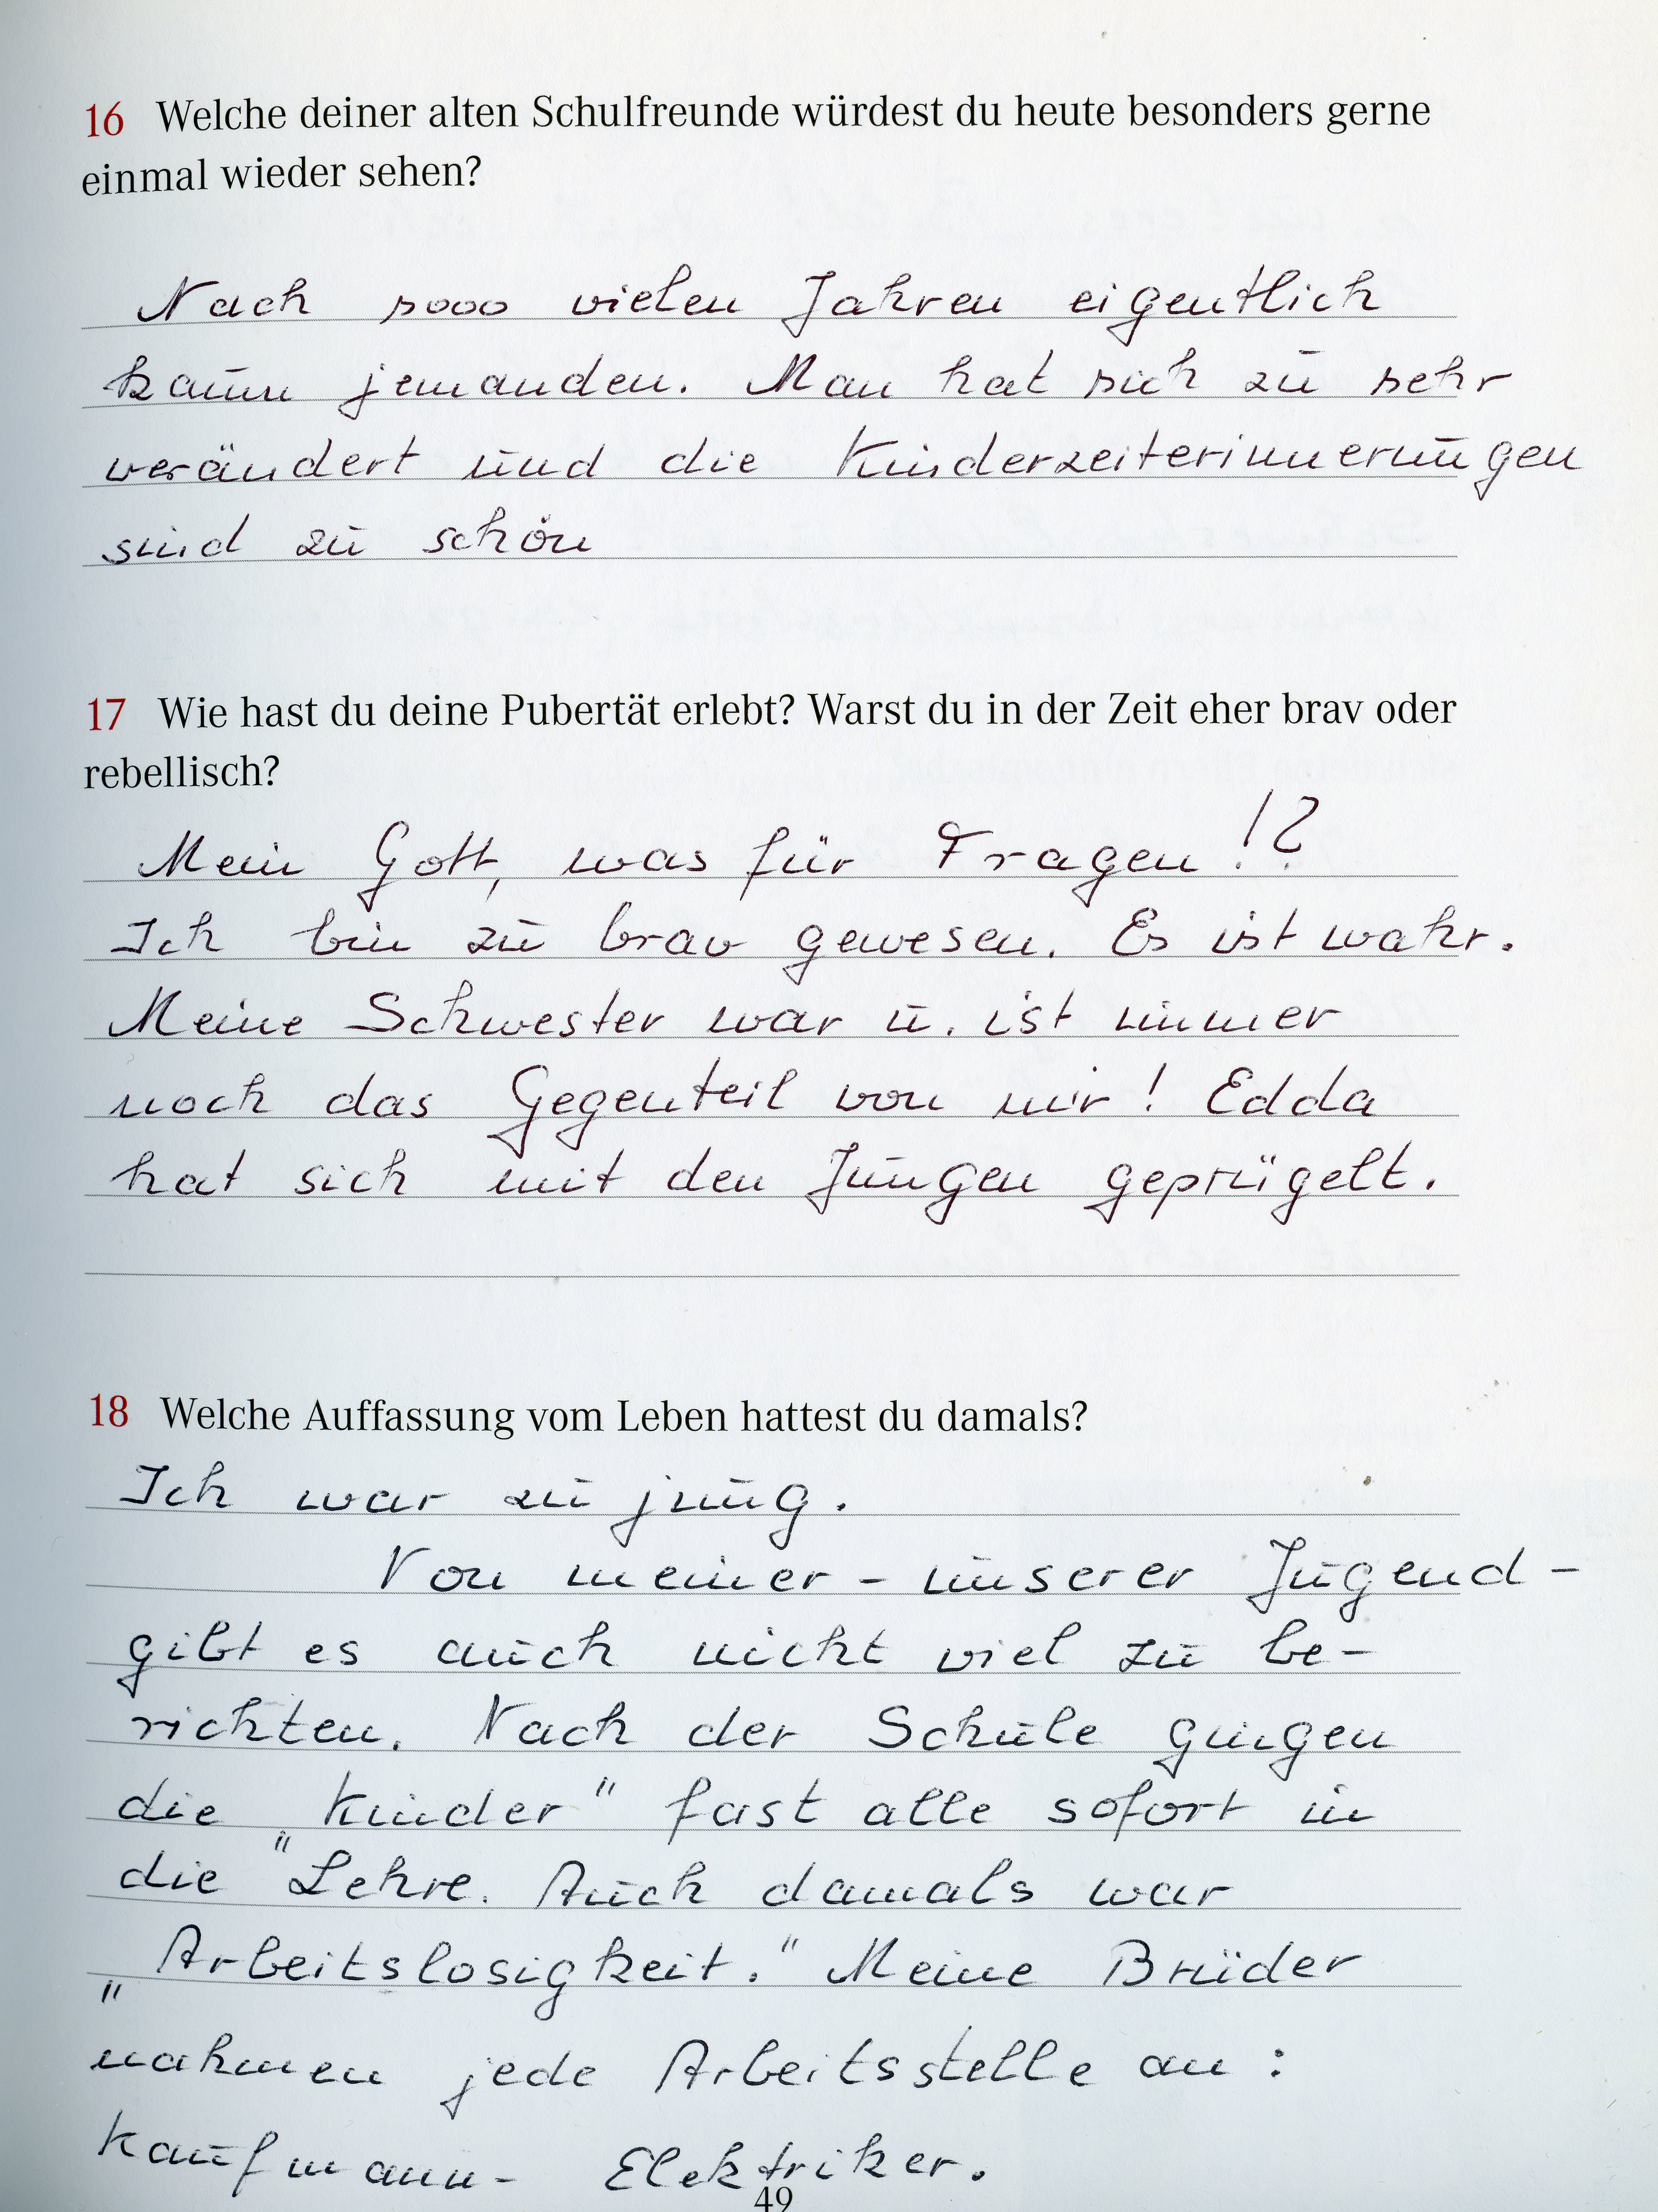 16 Welche deiner alten Schulfreunde würdest du heute besonders gerne
einmal wieder sehen?
Nach sooo vielen Jahren eigentlich
kaum jemanden. Man hat sich zu sehr
verändert und die Kinderzeiterinnerungen
sind zu schön
17 Wie hast du deine Pubertät erlebt? Warst du in der Zeit eher brav oder
rebellisch?
Mein Gott, was für Fragen!?
Ich bin zu brav gewesen. Es ist wahr.
Meine Schwester war u. ist immer
noch das Gegenteil von mir! Edda
hat sich mit den Jungen geprügelt.
18 Welche Auffassung vom Leben hattest du damals?
Ich war zu jung.
Von meiner - unserer Jugend -
gibt es auch nicht viel zu be-
richten. Nach der Schule gingen
die „Kinder" fast alle sofort in
die Lehre. Auch damals war
„Arbeitslosigkeit." Meine Brüder
nahmen jede Arbeitsstelle an:
Kaufmann- Elektriker.
49